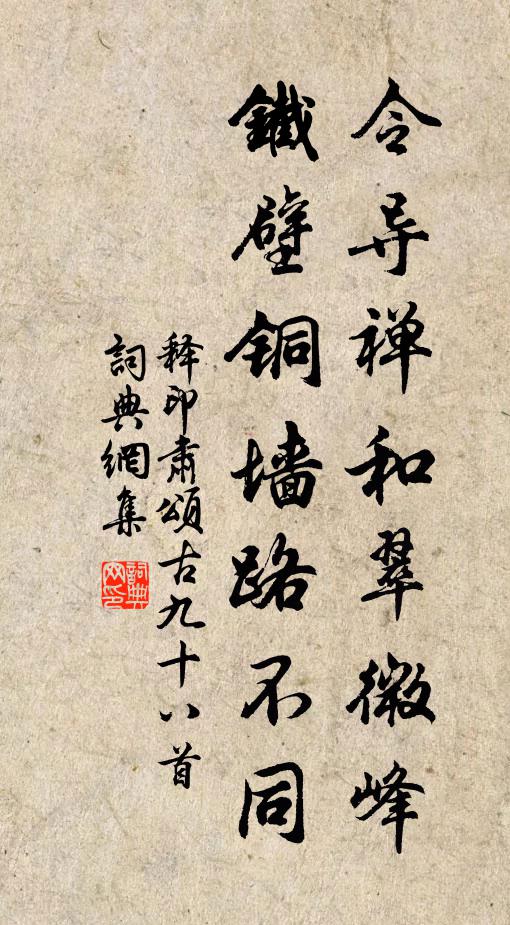 令导禅和翠微峰
鐵壁铜墙路不同
释印肃頌古九十八首
詞典網集
詞典网印